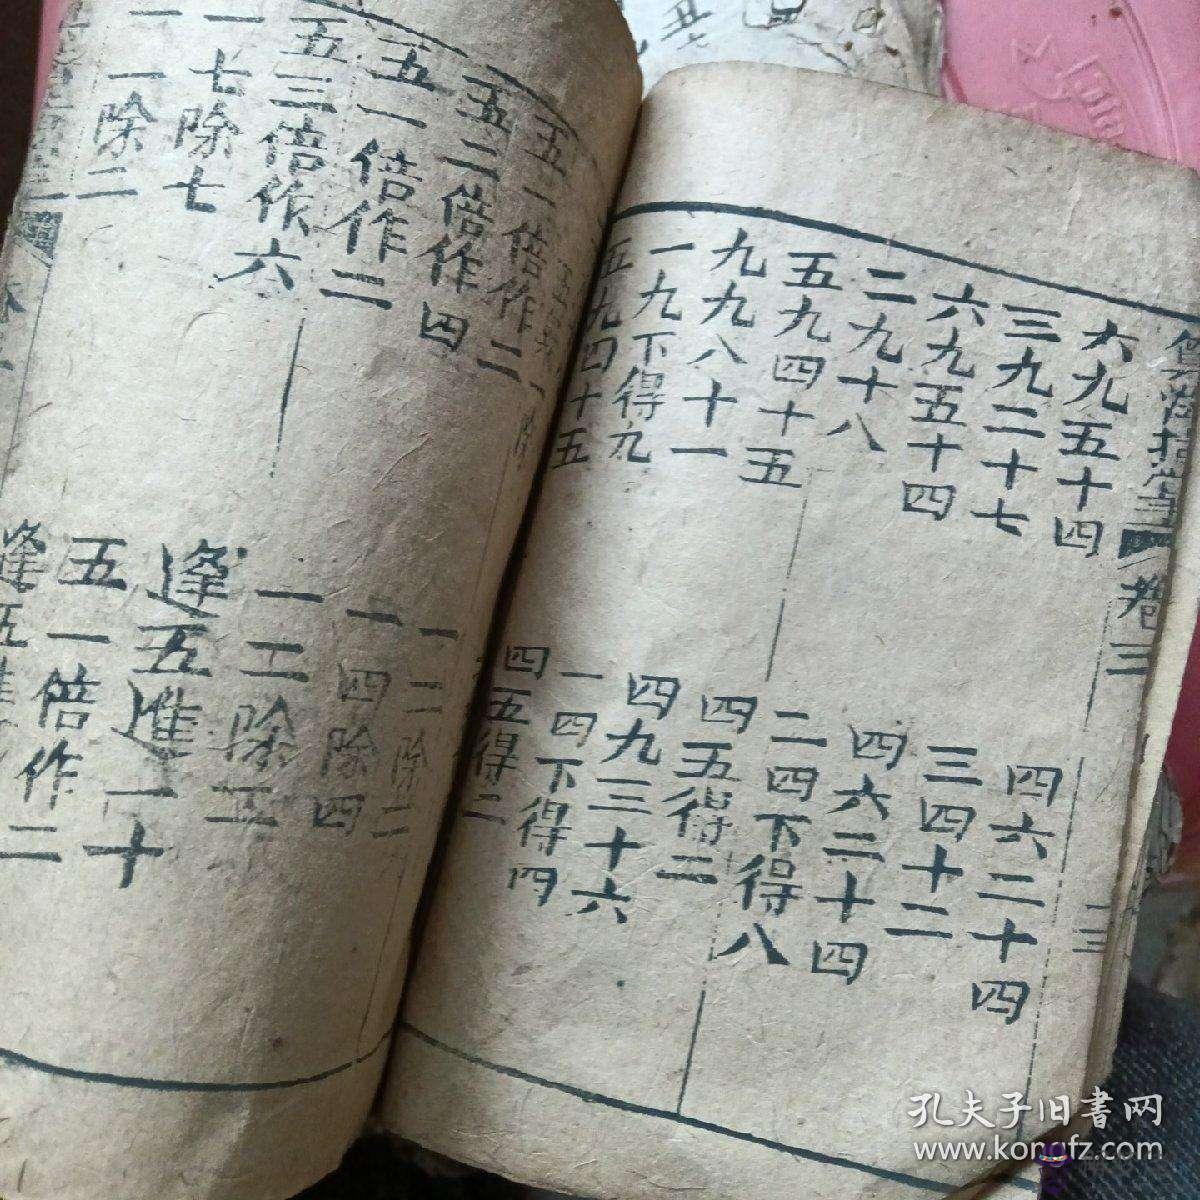 卷三
六九五十四
三九二十七
六九五十四
二九十八
五九四十五
九九八十一
一九下得九
五九四十五
四六二十四
三四十二
四六二十四
二四下得八
四五得二
四九三十六
一四下得四
四五得二
十三
五一倍作二
五二倍作四
五一倍作二
五三倍作六
一七除七
一一除二
一二除二
一四除四
一二除五
逢五進一十
五一倍作二
逢五進
孔夫子旧書网
www.kongfz.com